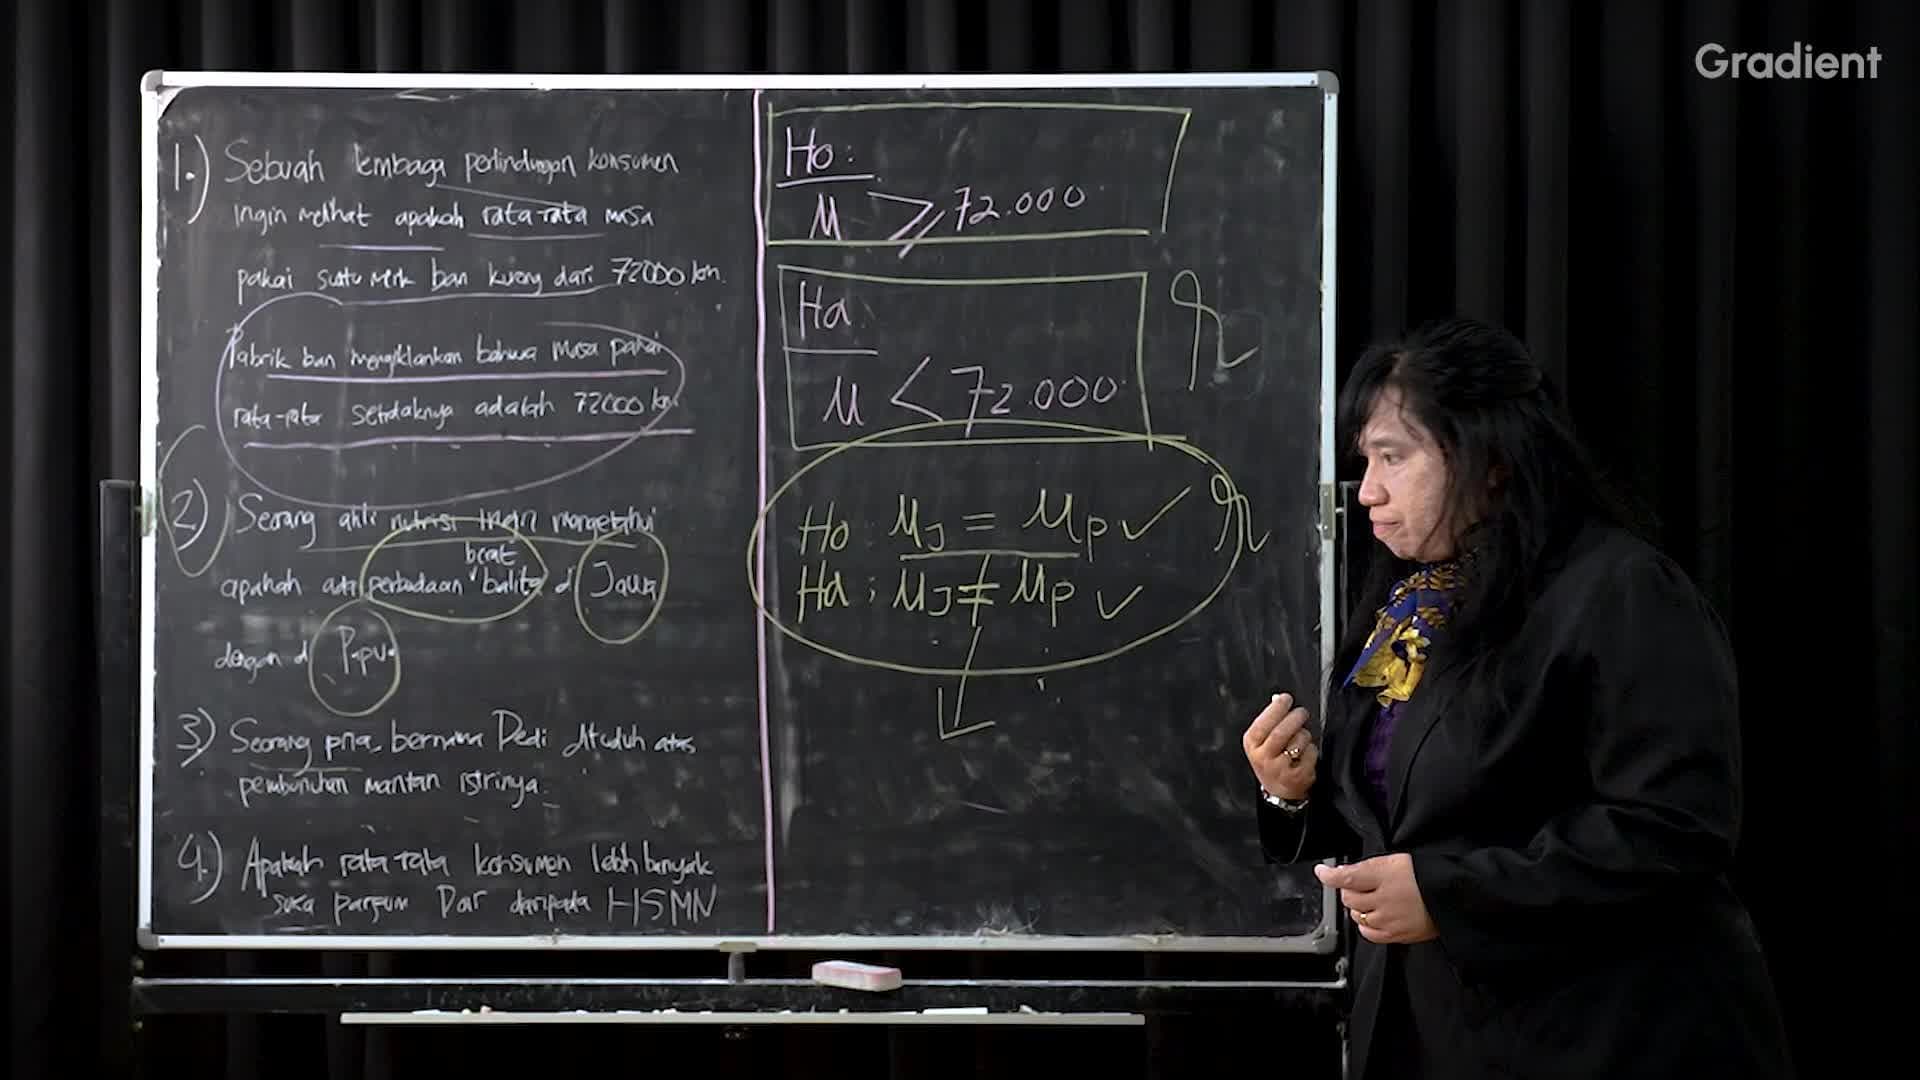 Gradient
1.) Sebuah lembaga perlindungan konsumen
ingin melihat apakah rata-rata masa
pakai suatu merk ban kurang dari 72000 km.
Pabrik ban mengiklankan bahwa masa pakai
rata-rata setidaknya adalah 72000 km.
2) Seorang ahli nutrisi ingin mengetahui
berat
apakah ada perbedaan balita di Jawa
dengan di Papua
3) Seorang pria, bernama Dedi dituduh atas
pembunuhan mantan istrinya.
4.) Apakah rata-rata konsumen lebih banyak
suka parfum Dar daripada HSMN
Ho:
μ ≥ 72.000
Ha:
μ < 72.000
Ho : μJ = μP ✓
Ha : μJ ≠ μP ✓